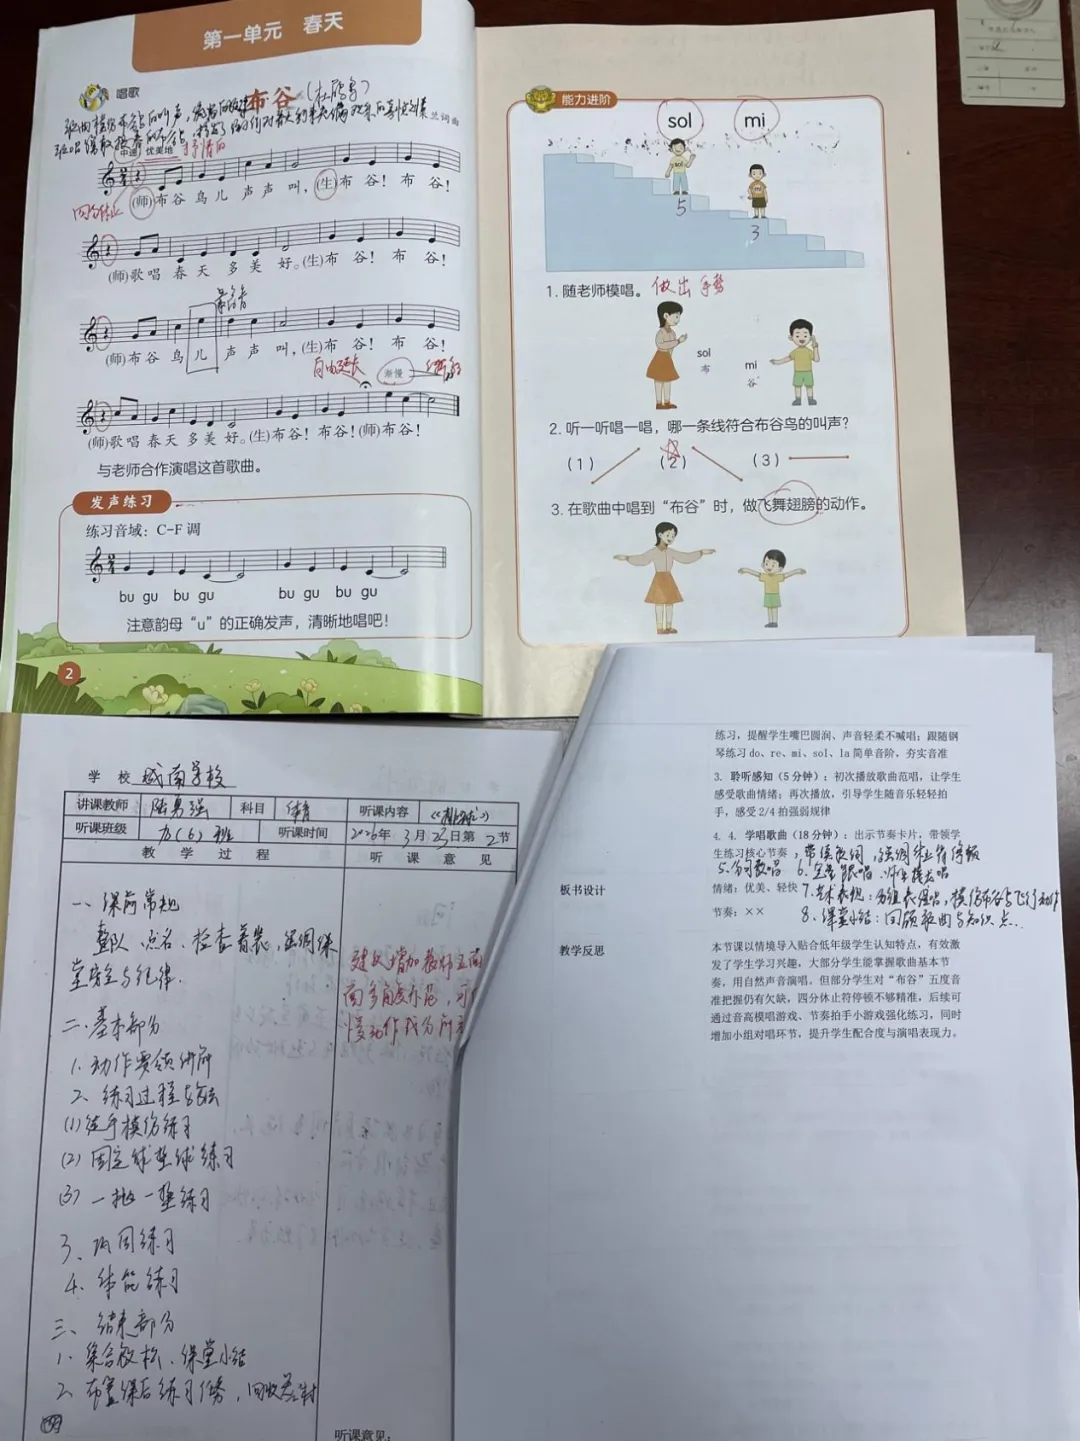 第一单元 春天
唱歌
布谷
(杜鹃鸟)
兰词曲
中速 优美地
抒情的
四分休止
(师)布谷鸟儿声声叫,(生)布谷!布谷!
(师)歌唱春天多美好。(生)布谷!布谷!
最高音
(师)布谷鸟儿声声叫,(生)布谷!布谷!
自由延长
渐慢
(师)歌唱春天多美好。(生)布谷!布谷!(师)布谷!
与老师合作演唱这首歌曲。
发声练习
练习音域:C-F 调
bu gu bu gu bu gu bu gu
注意韵母“u”的正确发声,清晰地唱吧!
2
能力进阶
sol mi
5
3
1. 随老师模唱。 做出手势
sol
布
mi
谷
2. 听一听唱一唱,哪一条线符合布谷鸟的叫声?
(1) (2) (3)
3. 在歌曲中唱到“布谷”时,做飞舞翅膀的动作。
学 校 城南学校
讲课教师 陆勇强 科目 体育 听课内容
听课班级 九(6)班 听课时间 2026年3月23日第2节
教 学 过 程 听 课 意 见
一、课前常规
整队、点名、检查着装,强调课
堂安全与纪律.
二、基本部分
1. 动作要领讲解
2、练习过程与方法
(1)徒手模仿练习
(2)固定球垫球练习
(3)一抛一垫练习
3、巩固练习
4、体能练习
三、结束部分
1、集合放松、课堂小结
2、布置课后练习任务,回收器材
建议增加教师正面
面多角度示范,可
慢动作
听课意见:
练习,提醒学生嘴巴圆润、声音轻柔不喊唱;跟随钢
琴练习 do、re、mi、sol、la 简单音阶,夯实音准
3. 聆听感知(5 分钟):初次播放歌曲范唱,让学生
感受歌曲情绪;再次播放,引导学生随音乐轻轻拍
手,感受 2/4 拍强弱规律
4. 4. 学唱歌曲(18 分钟):出示节奏卡片,带领学
生练习核心节奏,带读歌词,强调休止符停顿
5.分句教唱 6.完整跟唱、师生接龙唱
板书设计
情绪:优美、轻快 7.艺术表现:分组表演唱,模仿布谷鸟飞行动作
节奏:×× 8.课堂小结:回顾歌曲与知识点.
教学反思
本节课以情境导入贴合低年级学生认知特点,有效激
发了学生学习兴趣,大部分学生能掌握歌曲基本节
奏,用自然声音演唱。但部分学生对“布谷”五度音
准把握仍有欠缺,四分休止符停顿不够精准,后续可
通过音高模唱游戏、节奏拍手小游戏强化练习,同时
增加小组对唱环节,提升学生配合度与演唱表现力。